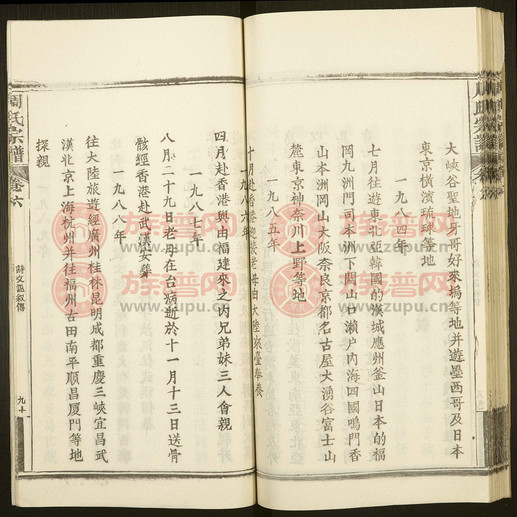 大峽谷聖地牙哥好來塢等地并遊墨西哥及日本
東京橫濱琉球等地
一九八四年
七月往遊東北亞韓國的漢城應州釜山日本的福
岡九洲門司本洲下關山口瀨户內海四國鳴門香
山本洲岡山大阪奈良京都名古屋大湧谷富士山
麓東京神奈川上野等地
一九八五年
十月赴香港迎接老母由大陸來臺奉養
一九八六年
四月赴香港與由福建來之內兄弟妹三人會親
一九八七年
八月二十九日老母在台病逝於十一月十三日送骨
骸經香港赴武漢安葬
一九八八年
往大陸旅遊經廣州桂林昆明成都重慶三峽宜昌武
漢北京上海杭州并往福州古田南平順昌厦門等地
探親
周氏宗譜
卷六
詩文誥敘傳
九十
族譜网
www.zupu.cn